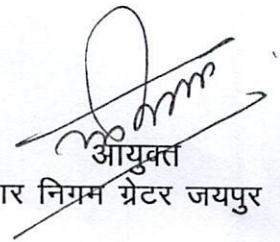 आयुक्त
निगम ग्रेटर जयपुर